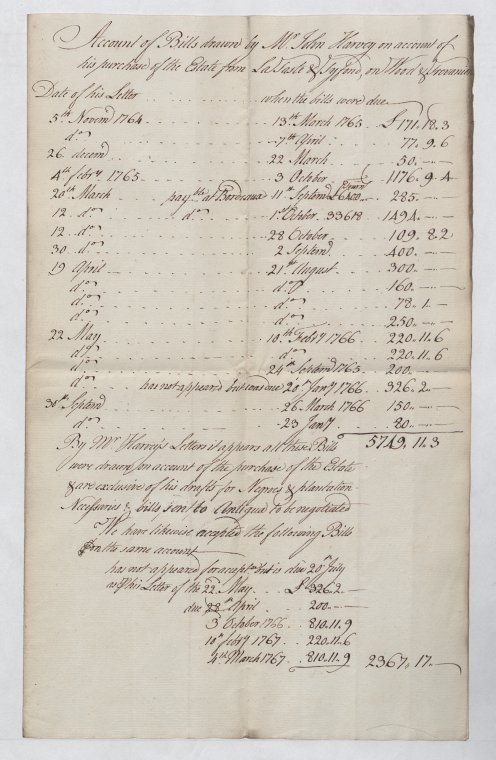 Account of Bills drawn by Mr. John Harvey on account of
his purchase of the Estate from LaTaste & Tyssond, on Wood & Trevanion
Date of his Letter . . . when the bills were due
5th Novemr 1764 . . . 13th March 1765 . . £171. 18. 3
do . . . 7th April . . 77. 9. 6
26 decemr . . . 22 March . . 50. — —
4th febry 1765 . . . 3 October . . 1176. 9. 4
20th March . . payble at Bordeaux 11th Septemr £6400 . . 285. — —
12. do . . do . . 1st Octber. 33618 . . 1494. — —
12. do . . . 28 October . . 109. 8. 2
30. do . . . 2 Septemr . . 400. — —
19 April . . . 21st August . . 300. — —
do . . . do . . 160. — —
do . . . do . . 78. 1. —
do . . . do . . 250. — —
22 May . . . 10th Febry 1766 . . 220. 11. 6
do . . . do . . 220. 11. 6
do . . . 24th Septemr 1765 . . 200. — —
do . . has not appeared but was due 20th Janry 1766 . . 326. 2. —
30th Septemr . . . 26 March 1766 . . 150. — —
do . . . 23 Janry . . 80. — —
By Mr Harvey's Letters it appears all these Bills 5749. 11. 3
were drawn on account of the purchase of the Estate
& are exclusive of his drafts for Negroes & plantation
Necessarys & bills sent to Antigua to be negotiated
We have likewise accepted the following Bills
on the same account
has not appeared for accepta but is due 20th July
as P his Letter of the 22 May . . £326. 2. —
due 28th April . . 200. — —
3 October 1766 . . 810. 11. 9
10th Febry 1767 . . 220. 11. 6
4th March 1767 . . 810. 11. 9 2367. 17. —